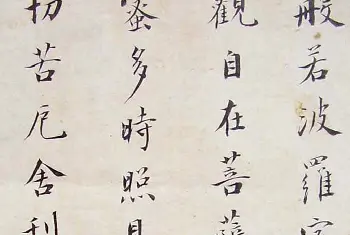 般若波羅蜜
觀自在菩薩
蜜多時照見
切苦厄舍利